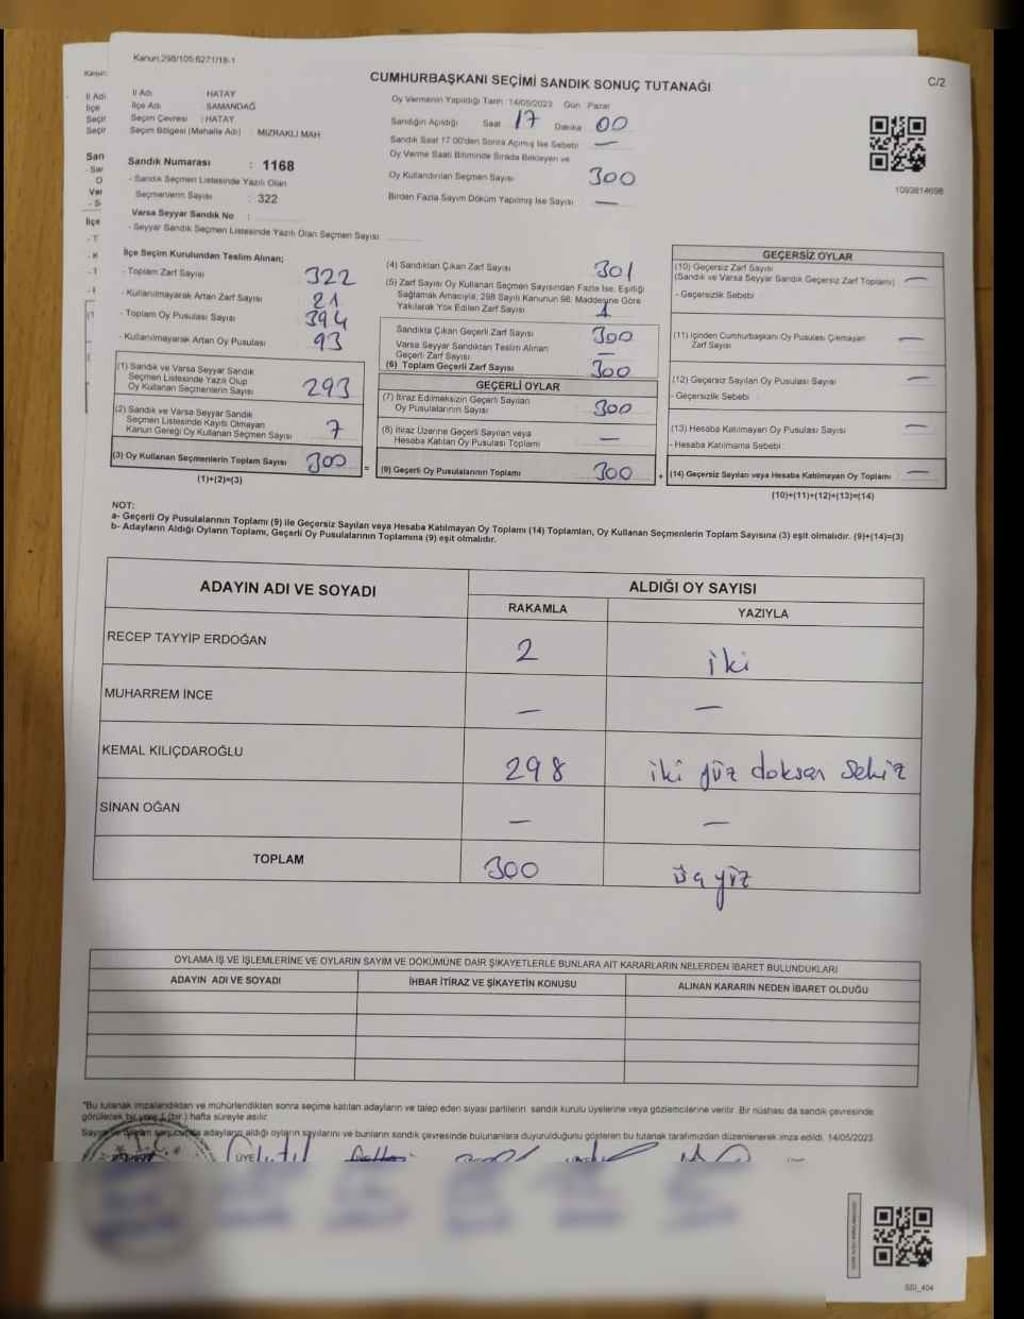 Kanun:298/105;6271/18-1
CUMHURBAŞKANI SEÇİMİ SANDIK SONUÇ TUTANAĞI
C/2
İl Adı HATAY
İlçe Adı SAMANDAĞ
Seçim Çevresi : HATAY
Seçim Bölgesi (Mahalle Adı) : MIZRAKLI MAH
Oy Vermenin Yapıldığı Tarih : 14/05/2023 Gün Pazar
Sandığın Açıldığı Saat 17 Dakika 00
Sandık Saat 17.00'den Sonra Açılmış İse Sebebi —
Oy Verme Saati Bitiminde Sırada Bekleyen ve
Oy Kullandırılan Seçmen Sayısı 300
Birden Fazla Sayım Döküm Yapılmış İse Sayısı —
1093814698
Sandık Numarası : 1168
- Sandık Seçmen Listesinde Yazılı Olan
Seçmenlerin Sayısı : 322
Varsa Seyyar Sandık No :
- Seyyar Sandık Seçmen Listesinde Yazılı Olan Seçmen Sayısı
İlçe Seçim Kurulundan Teslim Alınan;
- Toplam Zarf Sayısı 322
- Kullanılmayarak Artan Zarf Sayısı 21
- Toplam Oy Pusulası Sayısı 394
- Kullanılmayarak Artan Oy Pusulası 93
(1) Sandık ve Varsa Seyyar Sandık
Seçmen Listesinde Yazılı Olup
Oy Kullanan Seçmenlerin Sayısı 293
(2) Sandık ve Varsa Seyyar Sandık
Seçmen Listesinde Kayıtlı Olmayan
Kanun Gereği Oy Kullanan Seçmen Sayısı 7
(3) Oy Kullanan Seçmenlerin Toplam Sayısı 300
(1)+(2)=(3)
(4) Sandıktan Çıkan Zarf Sayısı 301
(5) Zarf Sayısı Oy Kullanan Seçmen Sayısından Fazla İse, Eşitliği
Sağlamak Amacıyla, 298 Sayılı Kanunun 98. Maddesine Göre
Yakılarak Yok Edilen Zarf Sayısı 1
Sandıkta Çıkan Geçerli Zarf Sayısı 300
Varsa Seyyar Sandıktan Teslim Alınan
Geçerli Zarf Sayısı —
(6) Toplam Geçerli Zarf Sayısı 300
GEÇERLİ OYLAR
(7) İtiraz Edilmeksizin Geçerli Sayılan
Oy Pusulalarının Sayısı 300
(8) İtiraz Üzerine Geçerli Sayılan veya
Hesaba Katılan Oy Pusulası Toplamı —
= (9) Geçerli Oy Pusulalarının Toplamı 300
GEÇERSİZ OYLAR
(10) Geçersiz Zarf Sayısı
(Sandık ve Varsa Seyyar Sandık Geçersiz Zarf Toplamı) —
- Geçersizlik Sebebi
(11) İçinden Cumhurbaşkanı Oy Pusulası Çıkmayan
Zarf Sayısı —
(12) Geçersiz Sayılan Oy Pusulası Sayısı —
- Geçersizlik Sebebi
(13) Hesaba Katılmayan Oy Pusulası Sayısı —
- Hesaba Katılmama Sebebi
+ (14) Geçersiz Sayılan veya Hesaba Katılmayan Oy Toplamı —
(10)+(11)+(12)+(13)=(14)
NOT:
a- Geçerli Oy Pusulalarının Toplamı (9) ile Geçersiz Sayılan veya Hesaba Katılmayan Oy Toplamı (14) Toplamları, Oy Kullanan Seçmenlerin Toplam Sayısına (3) eşit olmalıdır. (9)+(14)=(3)
b- Adayların Aldığı Oyların Toplamı, Geçerli Oy Pusulalarının Toplamına (9) eşit olmalıdır.
ADAYIN ADI VE SOYADI
ALDIĞI OY SAYISI
RAKAMLA YAZIYLA
RECEP TAYYİP ERDOĞAN 2 iki
MUHARREM İNCE — —
KEMAL KILIÇDAROĞLU 298 iki yüz doksan sekiz
SİNAN OĞAN — —
TOPLAM 300 üç yüz
OYLAMA İŞ VE İŞLEMLERİNE VE OYLARIN SAYIM VE DÖKÜMÜNE DAİR ŞİKAYETLERLE BUNLARA AİT KARARLARIN NELERDEN İBARET BULUNDUKLARI
ADAYIN ADI VE SOYADI İHBAR İTİRAZ VE ŞİKAYETİN KONUSU ALINAN KARARIN NEDEN İBARET OLDUĞU
*Bu tutanak imzalandıktan ve mühürlendikten sonra seçime katılan adayların ve talep eden siyasi partilerin sandık kurulu üyelerine veya gözlemcilerine verilir. Bir nüshası da sandık çevresinde
görülecek bir yere 1 (bir) hafta süreyle asılır.
adayların aldığı oyların sayılarını ve bunların sandık çevresinde bulunanlara duyurulduğunu gösteren bu tutanak tarafımızdan düzenlenerek imza edildi. 14/05/2023
ÜYE